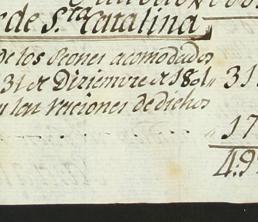 de S.ta Catalina
de los Peones acomodados
31 de Diziembre de 1801 31
y las raciones de dichos
17
4.9